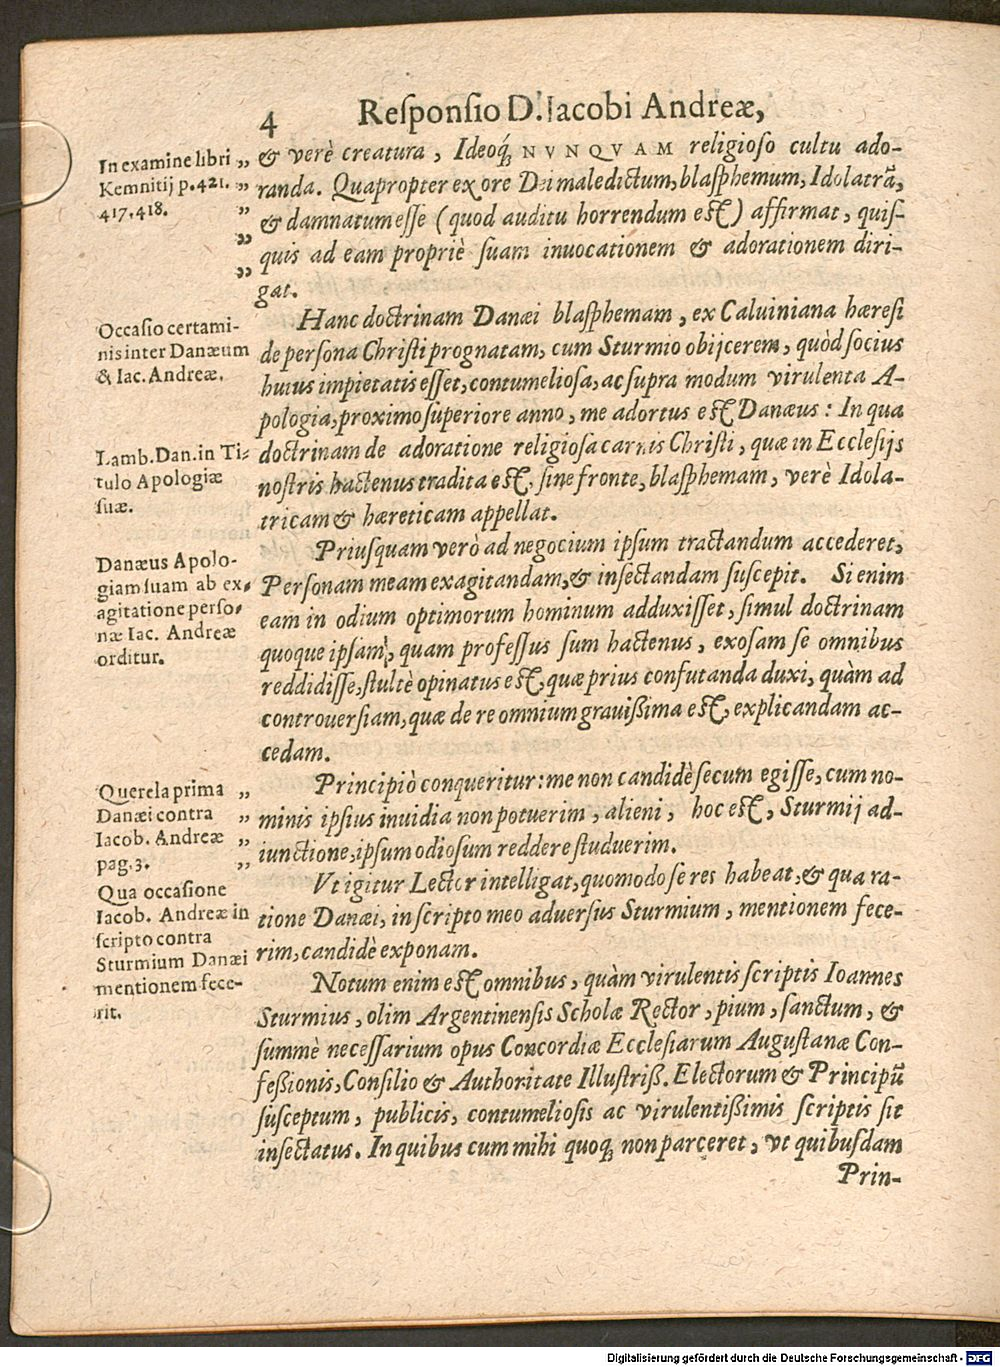 4 Reſponſio D. Iacobi Andreæ,
In examine libri „
Kemnitij p. 421. „
417. 418. „
& verè creatura, Ideoq́; NVNQVAM religioſo cultu ado-
randa. Quapropter ex ore Dei maledictum, blaſphemum, Idolatrã,
& damnatum eſſe (quod auditu horrendum eſt) affirmat, quiſ-
quis ad eam propriè ſuam inuocationem & adorationem diri-
gat.
Occaſio certami-
nis inter Danæum
& Iac. Andreæ.
Hanc doctrinam Danæi blaſphemam, ex Caluiniana hæreſi
de perſona Chriſti prognatam, cum Sturmio obijcerem, quòd ſocius
huius impietatis eſſet, contumelioſa, ac ſupra modum virulenta A-
pologia, proximo ſuperiore anno, me adortus eſt Danæus: In qua
Lamb. Dan. in Ti-
tulo Apologiæ
ſuæ.
doctrinam de adoratione religioſa carnis Chriſti, quæ in Eccleſijs
noſtris hactenus tradita eſt, ſine fronte, blaſphemam, verè Idola-
tricam & hæreticam appellat.
Danæus Apolo-
giam ſuam ab ex-
agitatione perſo-
næ Iac. Andreæ
orditur.
Priuſquam verò ad negocium ipſum tractandum accederet,
Perſonam meam exagitandam, & inſectandam ſuſcepit. Si enim
eam in odium optimorum hominum adduxiſſet, ſimul doctrinam
quoque ipſam, quam profeſſus ſum hactenus, exoſam ſe omnibus
reddidiſſe, ſtultè opinatus eſt, quæ prius confutanda duxi, quàm ad
controuerſiam, quæ de re omnium grauißima eſt, explicandam ac-
cedam.
Querela prima „
Danæi contra „
Iacob. Andreæ „
pag. 3. „
Principiò conqueritur: me non candidè ſecum egiſſe, cum no-
minis ipſius inuidia non potuerim, alieni, hoc eſt, Sturmij ad-
iunctione, ipſum odioſum reddere ſtuduerim.
Qua occaſione
Iacob. Andreæ in
ſcripto contra
Sturmium Danæi
mentionem fece-
rit.
Vt igitur Lector intelligat, quomodo ſe res habeat, & qua ra-
tione Danæi, in ſcripto meo aduerſus Sturmium, mentionem fece-
rim, candidè exponam.
Notum enim eſt omnibus, quàm virulentis ſcriptis Ioannes
Sturmius, olim Argentinenſis Scholæ Rector, pium, ſanctum, &
ſummè neceſſarium opus Concordiæ Eccleſiarum Auguſtanæ Con-
feßionis, Conſilio & Authoritate Illuſtriß. Electorum & Principũ
ſuſceptum, publicis, contumelioſis ac virulentißimis ſcriptis ſit
inſectatus. In quibus cum mihi quoq; non parceret, vt quibuſdam
Prin-
Digitalisierung gefördert durch die Deutsche Forschungsgemeinschaft - DFG